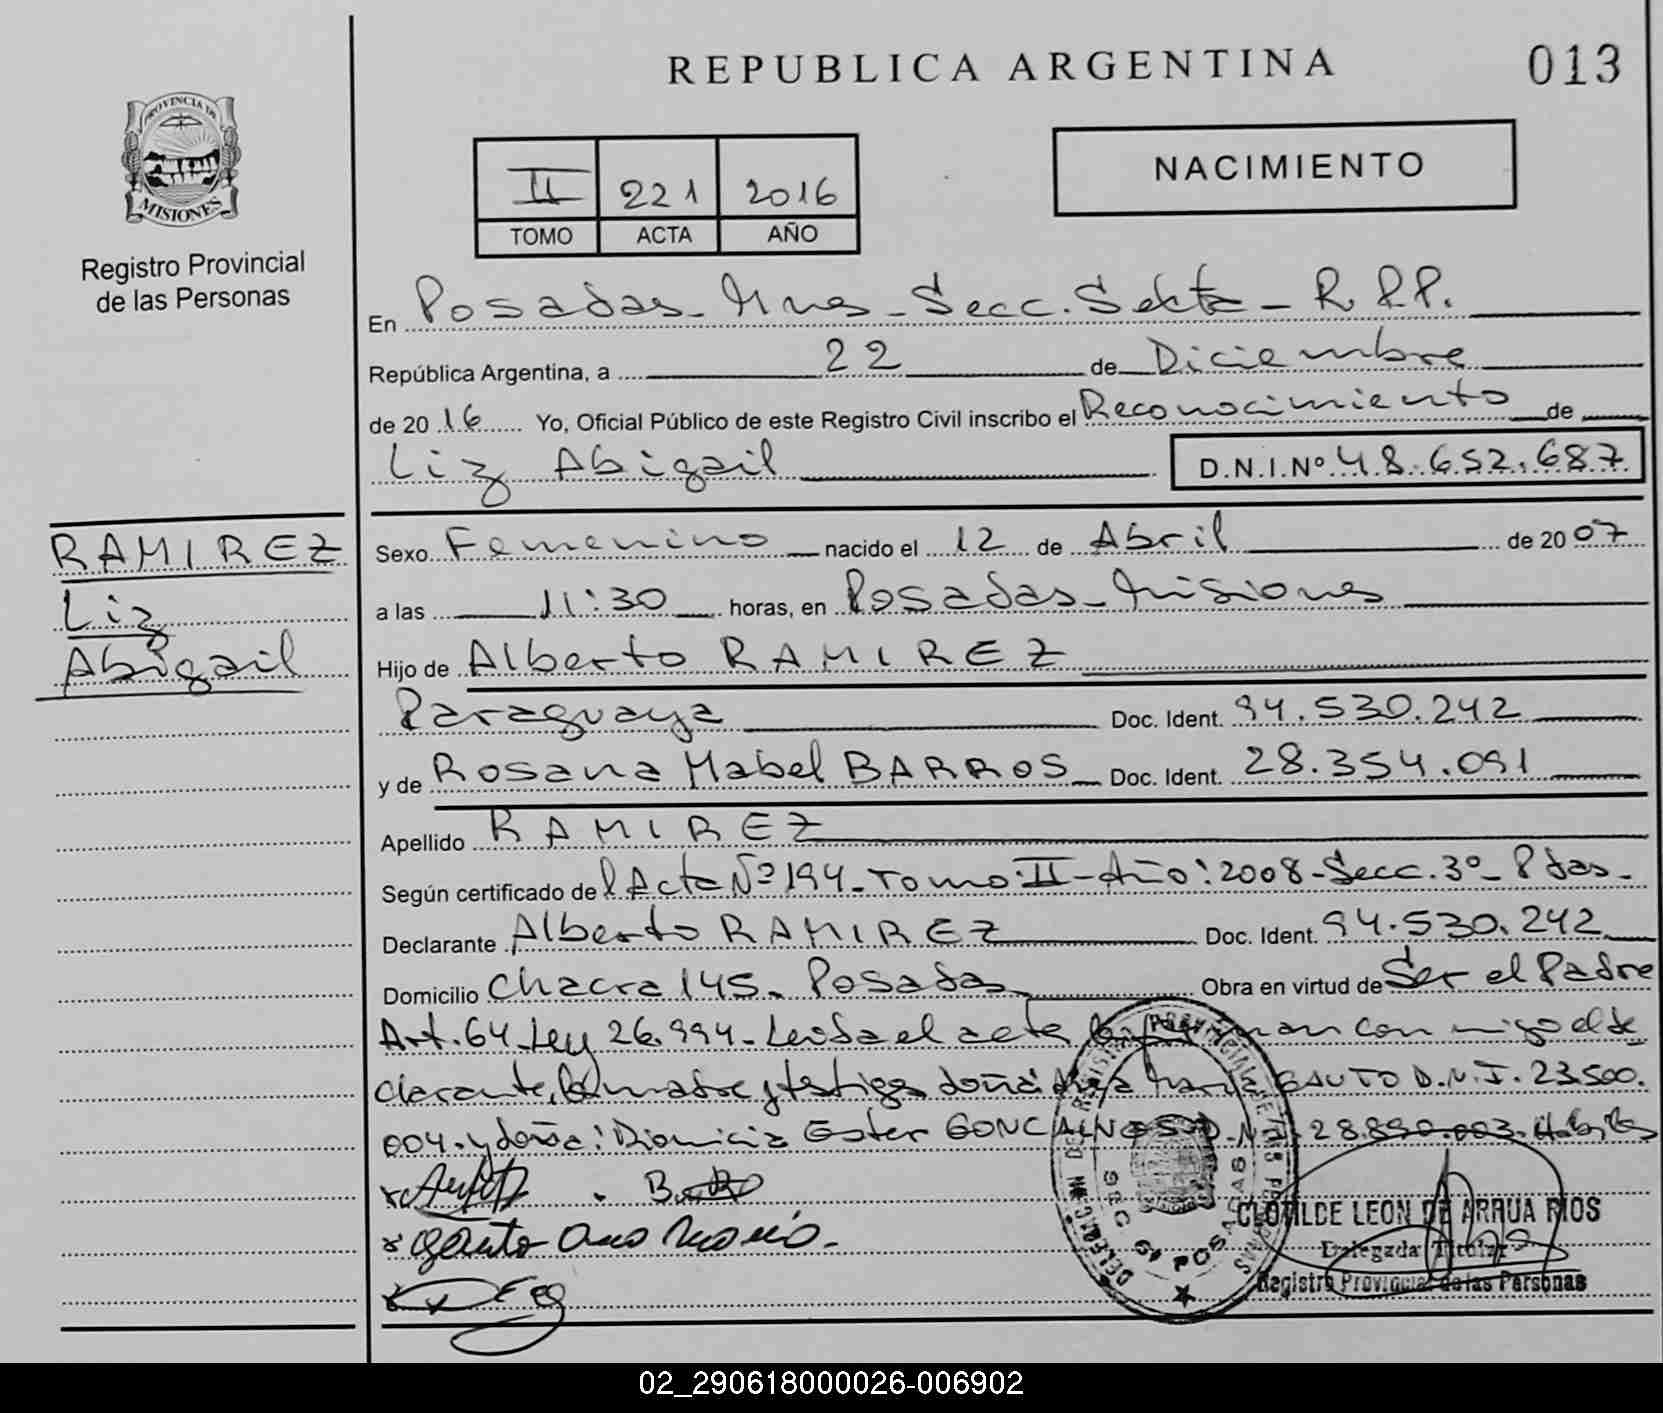 REPUBLICA ARGENTINA
013
PROVINCIA DE
MISIONES
Registro Provincial
de las Personas
II 221 2016
TOMO ACTA AÑO
NACIMIENTO
En Posadas - Mnes - Secc. Sexta - R.P.P.
República Argentina, a 22 de Diciembre
de 2016 Yo, Oficial Público de este Registro Civil inscribo el Reconocimiento de
Liz Abigail D.N.I.Nº 48.652.687
RAMIREZ
Liz
Abigail
Sexo Femenino nacido el 12 de Abril de 2007
a las 11:30 horas, en Posadas - Misiones
Hijo de Alberto RAMIREZ
Paraguaya Doc. Ident. 94.530.242
y de Rosana Mabel BARROS Doc. Ident. 28.354.091
Apellido RAMIREZ
Según certificado de Acta Nº 194 - Tomo: II - Año: 2008 - Secc. 3º - Pdas -
Declarante Alberto RAMIREZ Doc. Ident. 94.530.242
Domicilio Chacra 145 - Posadas Obra en virtud de Ser el Padre
Art. 64 Ley 26.994 - Leida el acta firman conmigo el de
clarante, la madre y testigos doña: GAUTO D.N.I. 23.500.
004. y doña: Dionicia Ester GONCALVES D.N.I. 28.890.003. Habiles
Gauto Ana Maria.
CLOTILDE LEON DE ARRUA RIOS
Delegada Titular
Registro Provincial de las Personas
SEC 6ª POSADAS
02_290618000026-006902